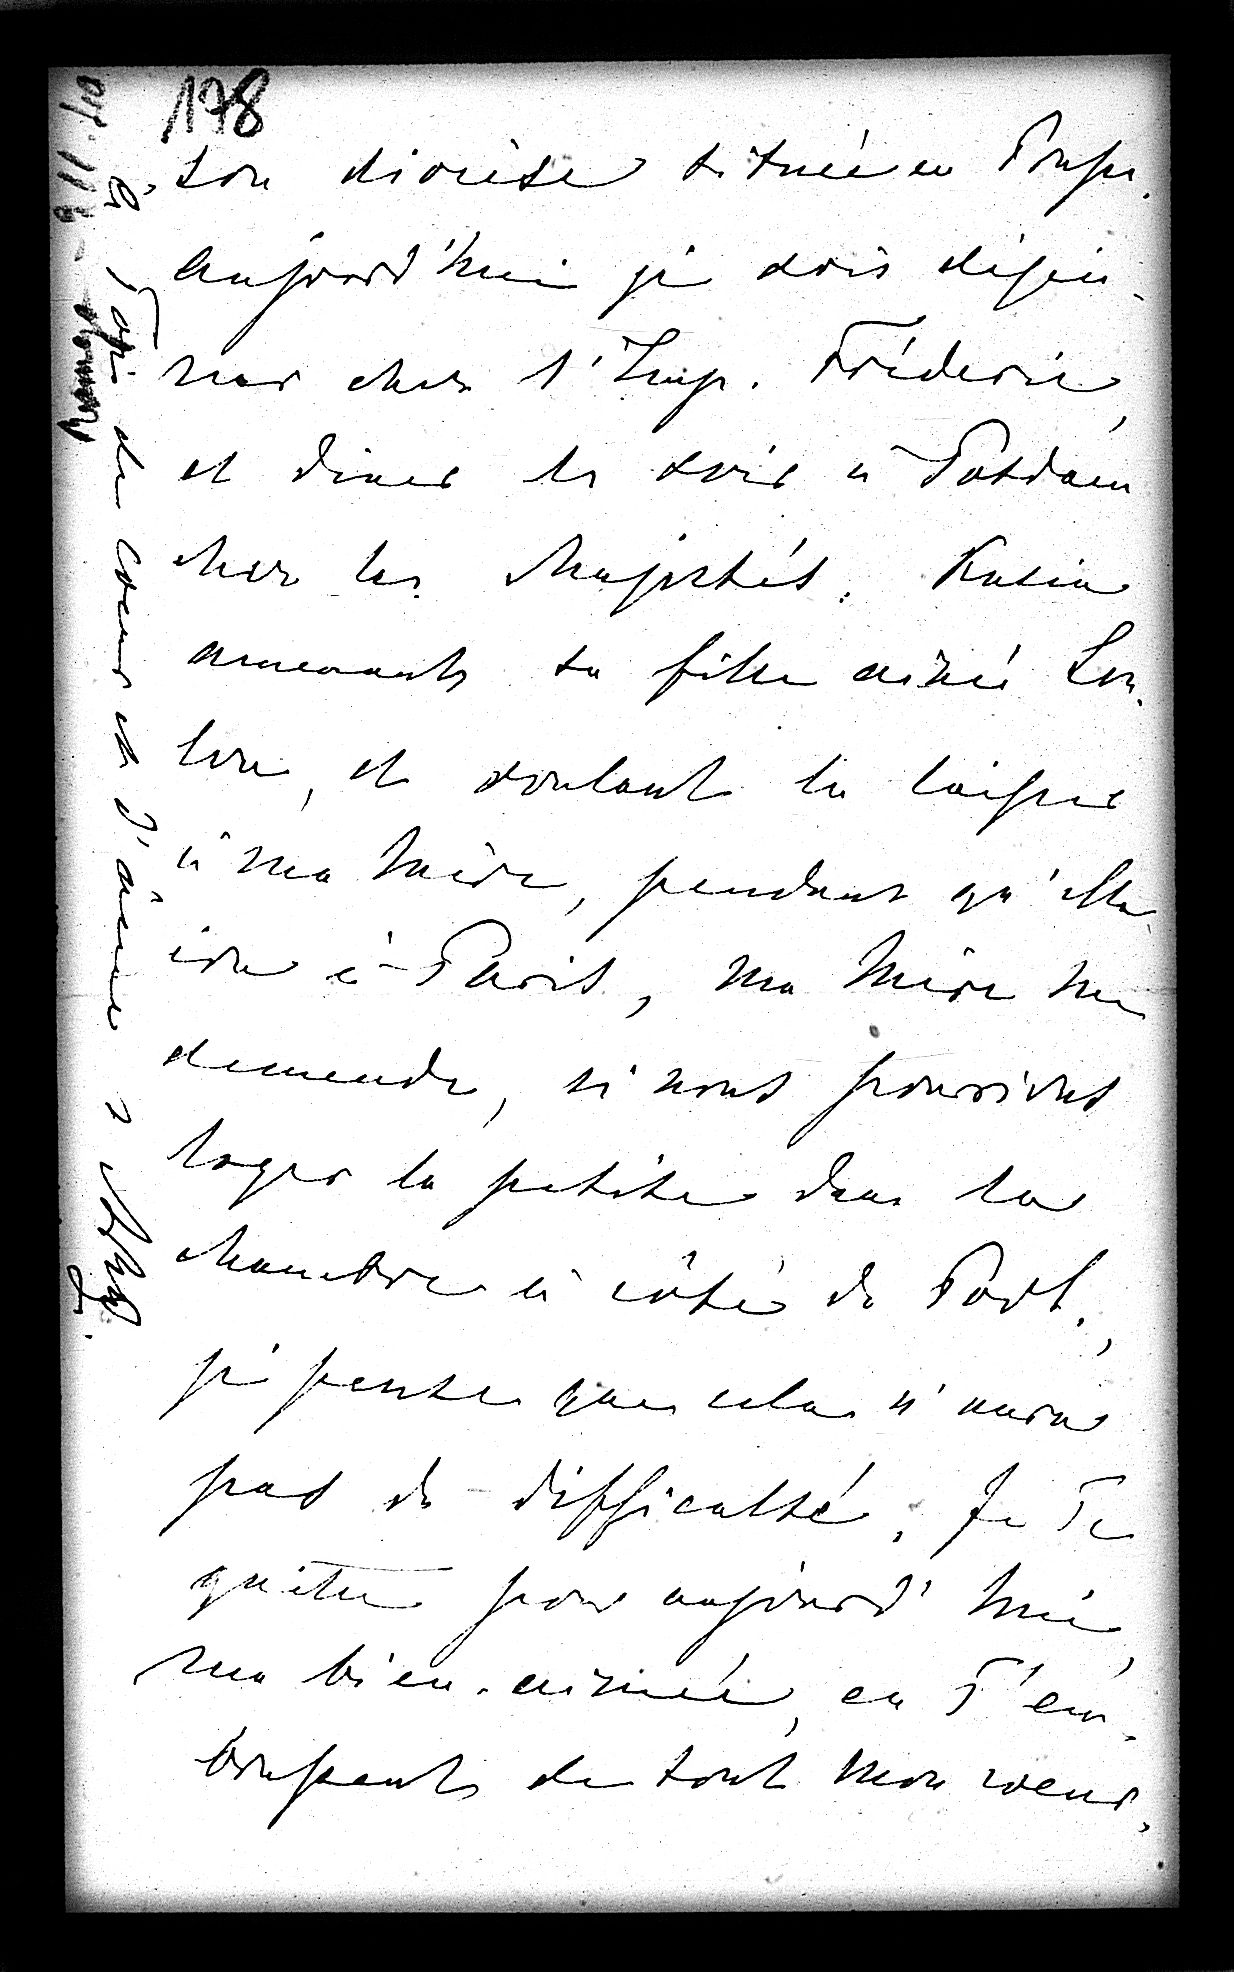 178
son diocèse située en Prusse.
Aujourd'hui je dois déjeu-
ner chez l'Imp. Fréderic,
et diner le soir à Potsdam
chez les Majestés. Kasia
amenant sa fille ainée Lou-
lou, et voulant la laisser
à ma Mère, pendant qu'elle
ira à Paris, ma Mère me
demende, si nous pourrions
loger la petite dans la
chambre à côté de
je pense que cela n'aura
pas de difficulté. Je Te
quitte pour aujourd'hui,
ma bien-aimée, en T'em-
brassant de tout mon coeur,
à Toi de coeur et d'âme